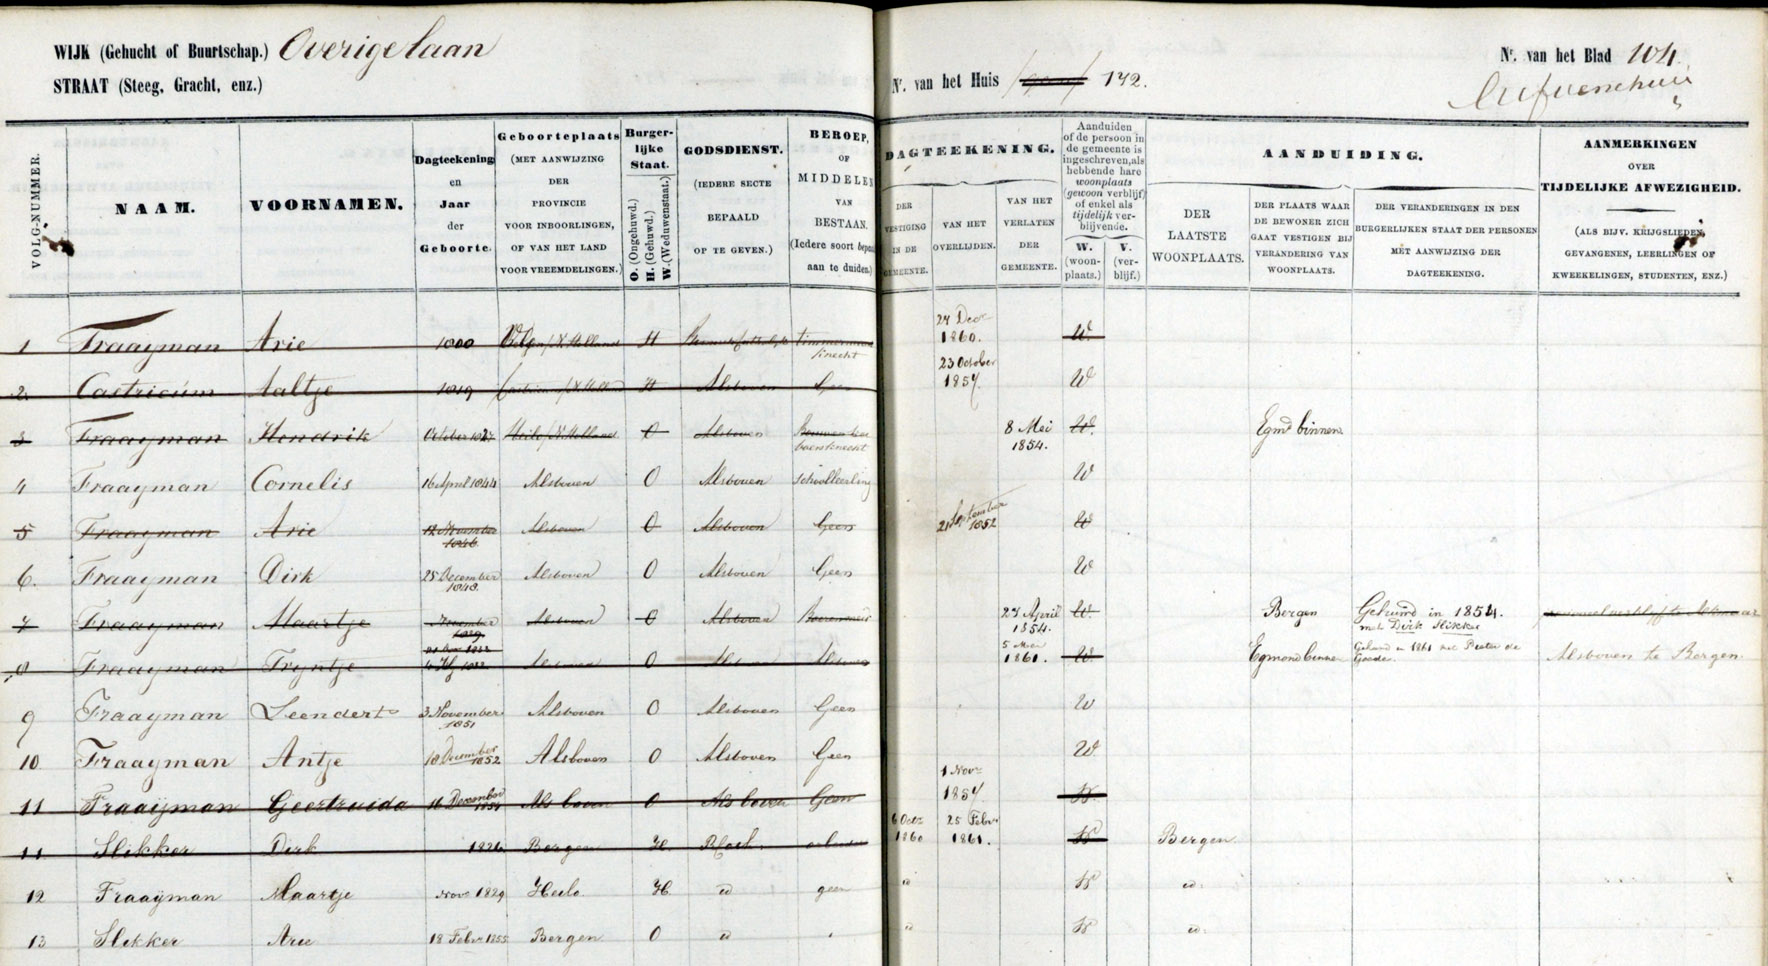 WIJK (Gehucht of Buurtschap.) Overigelaan
STRAAT (Steeg, Gracht, enz.)
Nr. van het Huis 172.
Nr. van het Blad 104.
VOLG-NUMMER.
NAAM.
VOORNAMEN.
Dagteekening
en
Jaar
der
Geboorte.
Geboorteplaats
(MET AANWIJZING
DER
PROVINCIE
VOOR INBOORLINGEN,
OF VAN HET LAND
VOOR VREEMDELINGEN.)
Burger-
lijke
Staat.
O. (Ongehuwd.)
H. (Gehuwd.)
W. (Weduwenstaat.)
GODSDIENST.
(IEDERE SECTE
BEPAALD
OP TE GEVEN.)
BEROEP,
OF
MIDDELEN
VAN
BESTAAN.
(Iedere soort
aan te duiden.)
DAGTEEKENING.
DER
VESTIGING
IN DE
GEMEENTE.
VAN HET
OVERLIJDEN.
VAN HET
VERLATEN
DER
GEMEENTE.
Aanduiden
of de persoon in
de gemeente is
ingeschreven, als
hebbende hare
woonplaats
(gewoon verblijf)
of enkel als
tijdelijk ver-
blijvende.
W.
(woon-
plaats.)
V.
(ver-
blijf.)
AANDUIDING.
DER
LAATSTE
WOONPLAATS.
DER PLAATS WAAR
DE BEWONER ZICH
GAAT VESTIGEN BIJ
VERANDERING VAN
WOONPLAATS.
DER VERANDERINGEN IN DEN
BURGERLIJKEN STAAT DER PERSONEN
MET AANWIJZING DER
DAGTEEKENING.
AANMERKINGEN
OVER
TIJDELIJKE AFWEZIGHEID.
(ALS BIJV. KRIJGSLIEDEN,
GEVANGENEN, LEERLINGEN OF
KWEEKELINGEN, STUDENTEN, ENZ.)
1 Fraayman Arie H timmermans knecht 27 Decr 1860. W
2. Castricum Aaltje 1819 H Alsboven Geen 23 October 1857. W
3 Fraayman Hendrik October 1827 Heilo/N. Holland O Alsboven 8 Mei 1854. W. Egmd binnen
4 Fraayman Cornelis 16 April 1844 Alsboven O Alsboven schoolleerling W
5 Fraayman Arie 12 November 1846 Alsboven O Alsboven Geen 21 September 1852 W
6. Fraayman Dirk 25 December 1848. Alsboven O Alsboven Geen W
7 Fraayman Maartje November 1829 Alsboven O Alsboven 27 April 1854. W. Bergen Gehuwd in 1854. met Dirk Slikker
8 Fraayman Tryntje Alsboven O Alsboven Alsboven 5 Mei 1861. W Egmond binnen Gehuwd in 1861 met Pieter de Goede. Alsboven te Bergen.
9 Fraayman Leendert 3 November 1851 Alsboven O Alsboven Geen W
10. Fraayman Antje 18 December 1852 Alsboven O Alsboven Geen W
11 Fraaijman Geertruida 16 December 1854 Als boven O Als boven Geen 1 Novr 1857. W.
11. Slikker Dirk 1826 Bergen H. R. Cath. 6 Octr 1860 25 Febr 1861. W Bergen
12 Fraaijman Maartje Novr 1829 Heilo H id geen id W id.
13 Slikker Arie 18 Febr 1855 Bergen O id id W id.